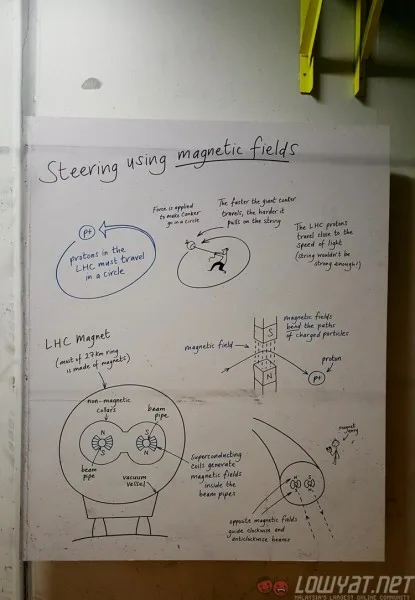 Steering using magnetic fields
p+
protons in the
LHC must travel
in a circle
Force is applied
to make conker
go in a circle
The faster the giant conker
travels, the harder it
pulls on the string
The LHC protons
travel close to the
speed of light
(string wouldn't be
strong enough!)
LHC Magnet
(most of 27km ring
is made of magnets)
magnetic fields
bend the paths
of charged particles
magnetic field
S
N
proton
p+
non-magnetic
collars
beam
pipe
N
S
S
N
beam
pipe
vacuum
vessel
Superconducting
coils generate
magnetic fields
inside the
beam pipes
magnet
opposite magnetic fields
guide clockwise and
anticlockwise beams
LOWYAT.NET
MALAYSIA'S LARGEST ONLINE COMMUNITY